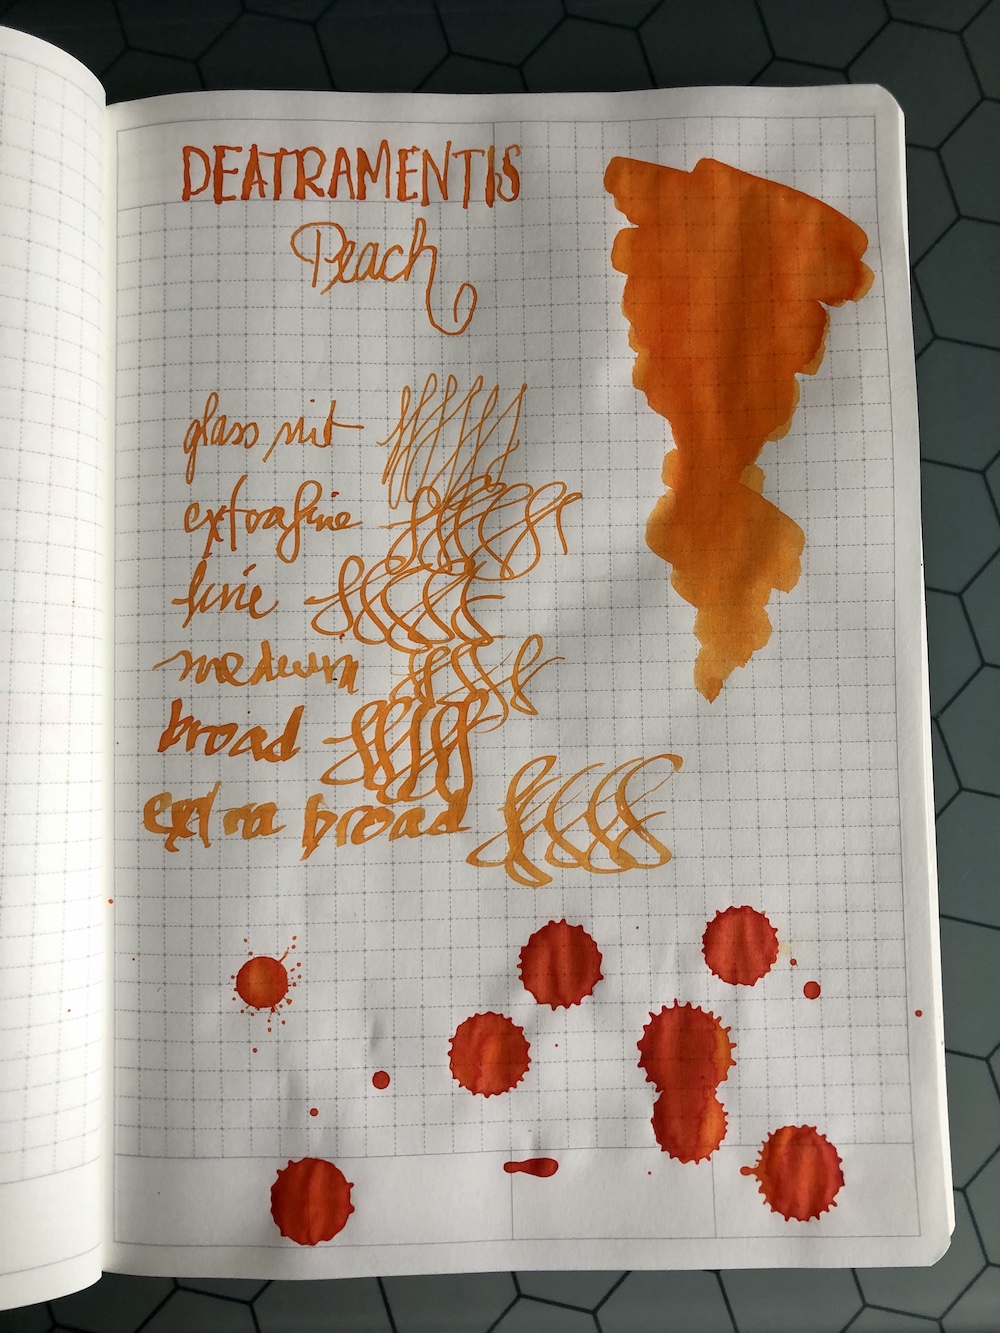 DEATRAMENTIS
Peach
glass nib
extrafine
fine
medium
broad
extra broad